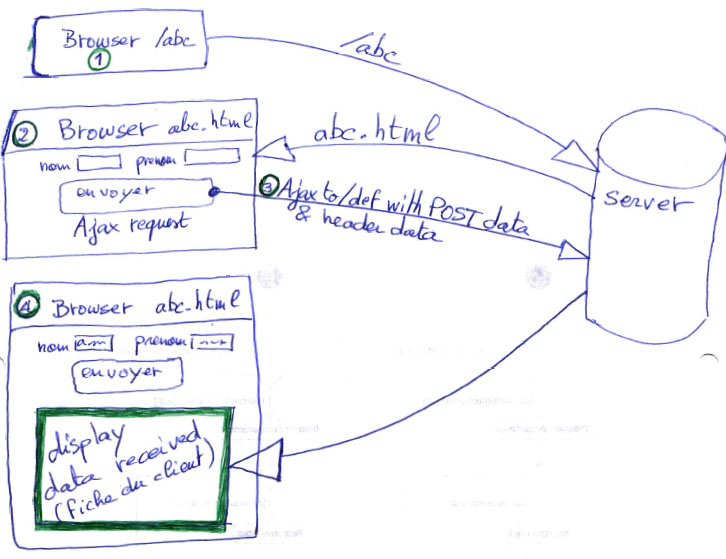 Browser /abc
1
/abc
2 Browser abc.html
abc.html
nom prenom
envoyer
Ajax request
3 Ajax to /def with POST data
& header data
server
4 Browser abc.html
nom prenom
envoyer
display
data received
(fiche du client)